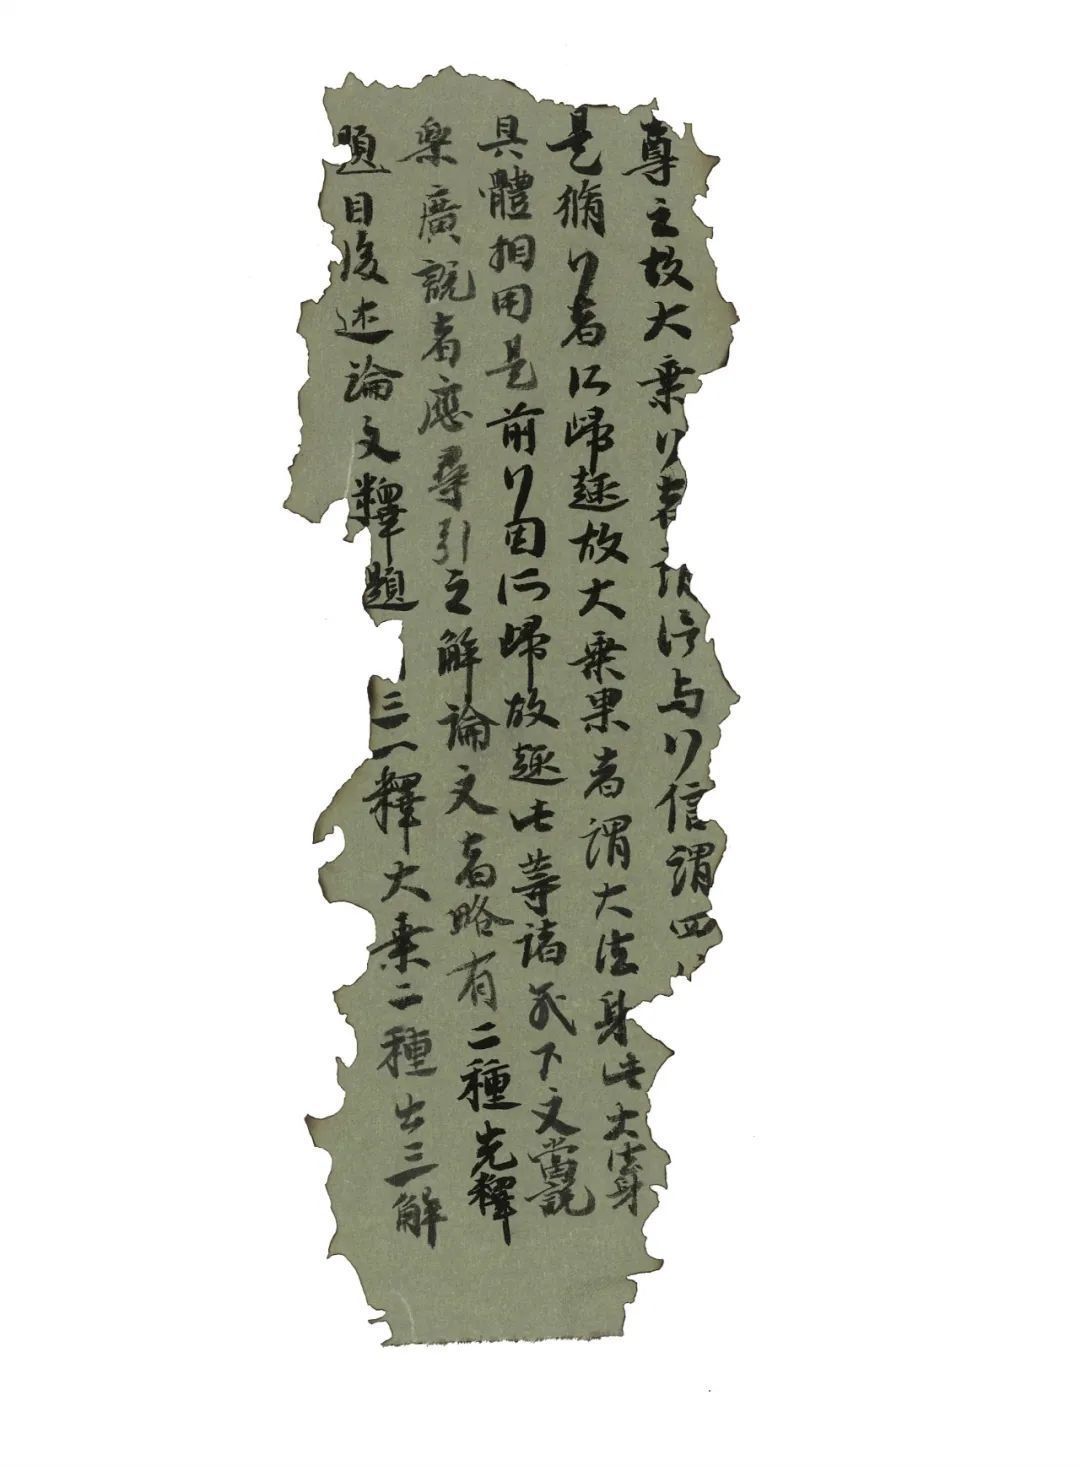 尊之故大乘行者謂行与行信謂四
是脩行者所歸趣故大乘果者謂大法身此大法身
具體相用是前行因所歸故趣此等諸義下文當說
樂廣說者應尋引之解論文者略有二種先釋
題目後述論文釋題三一釋大乘二種出三解